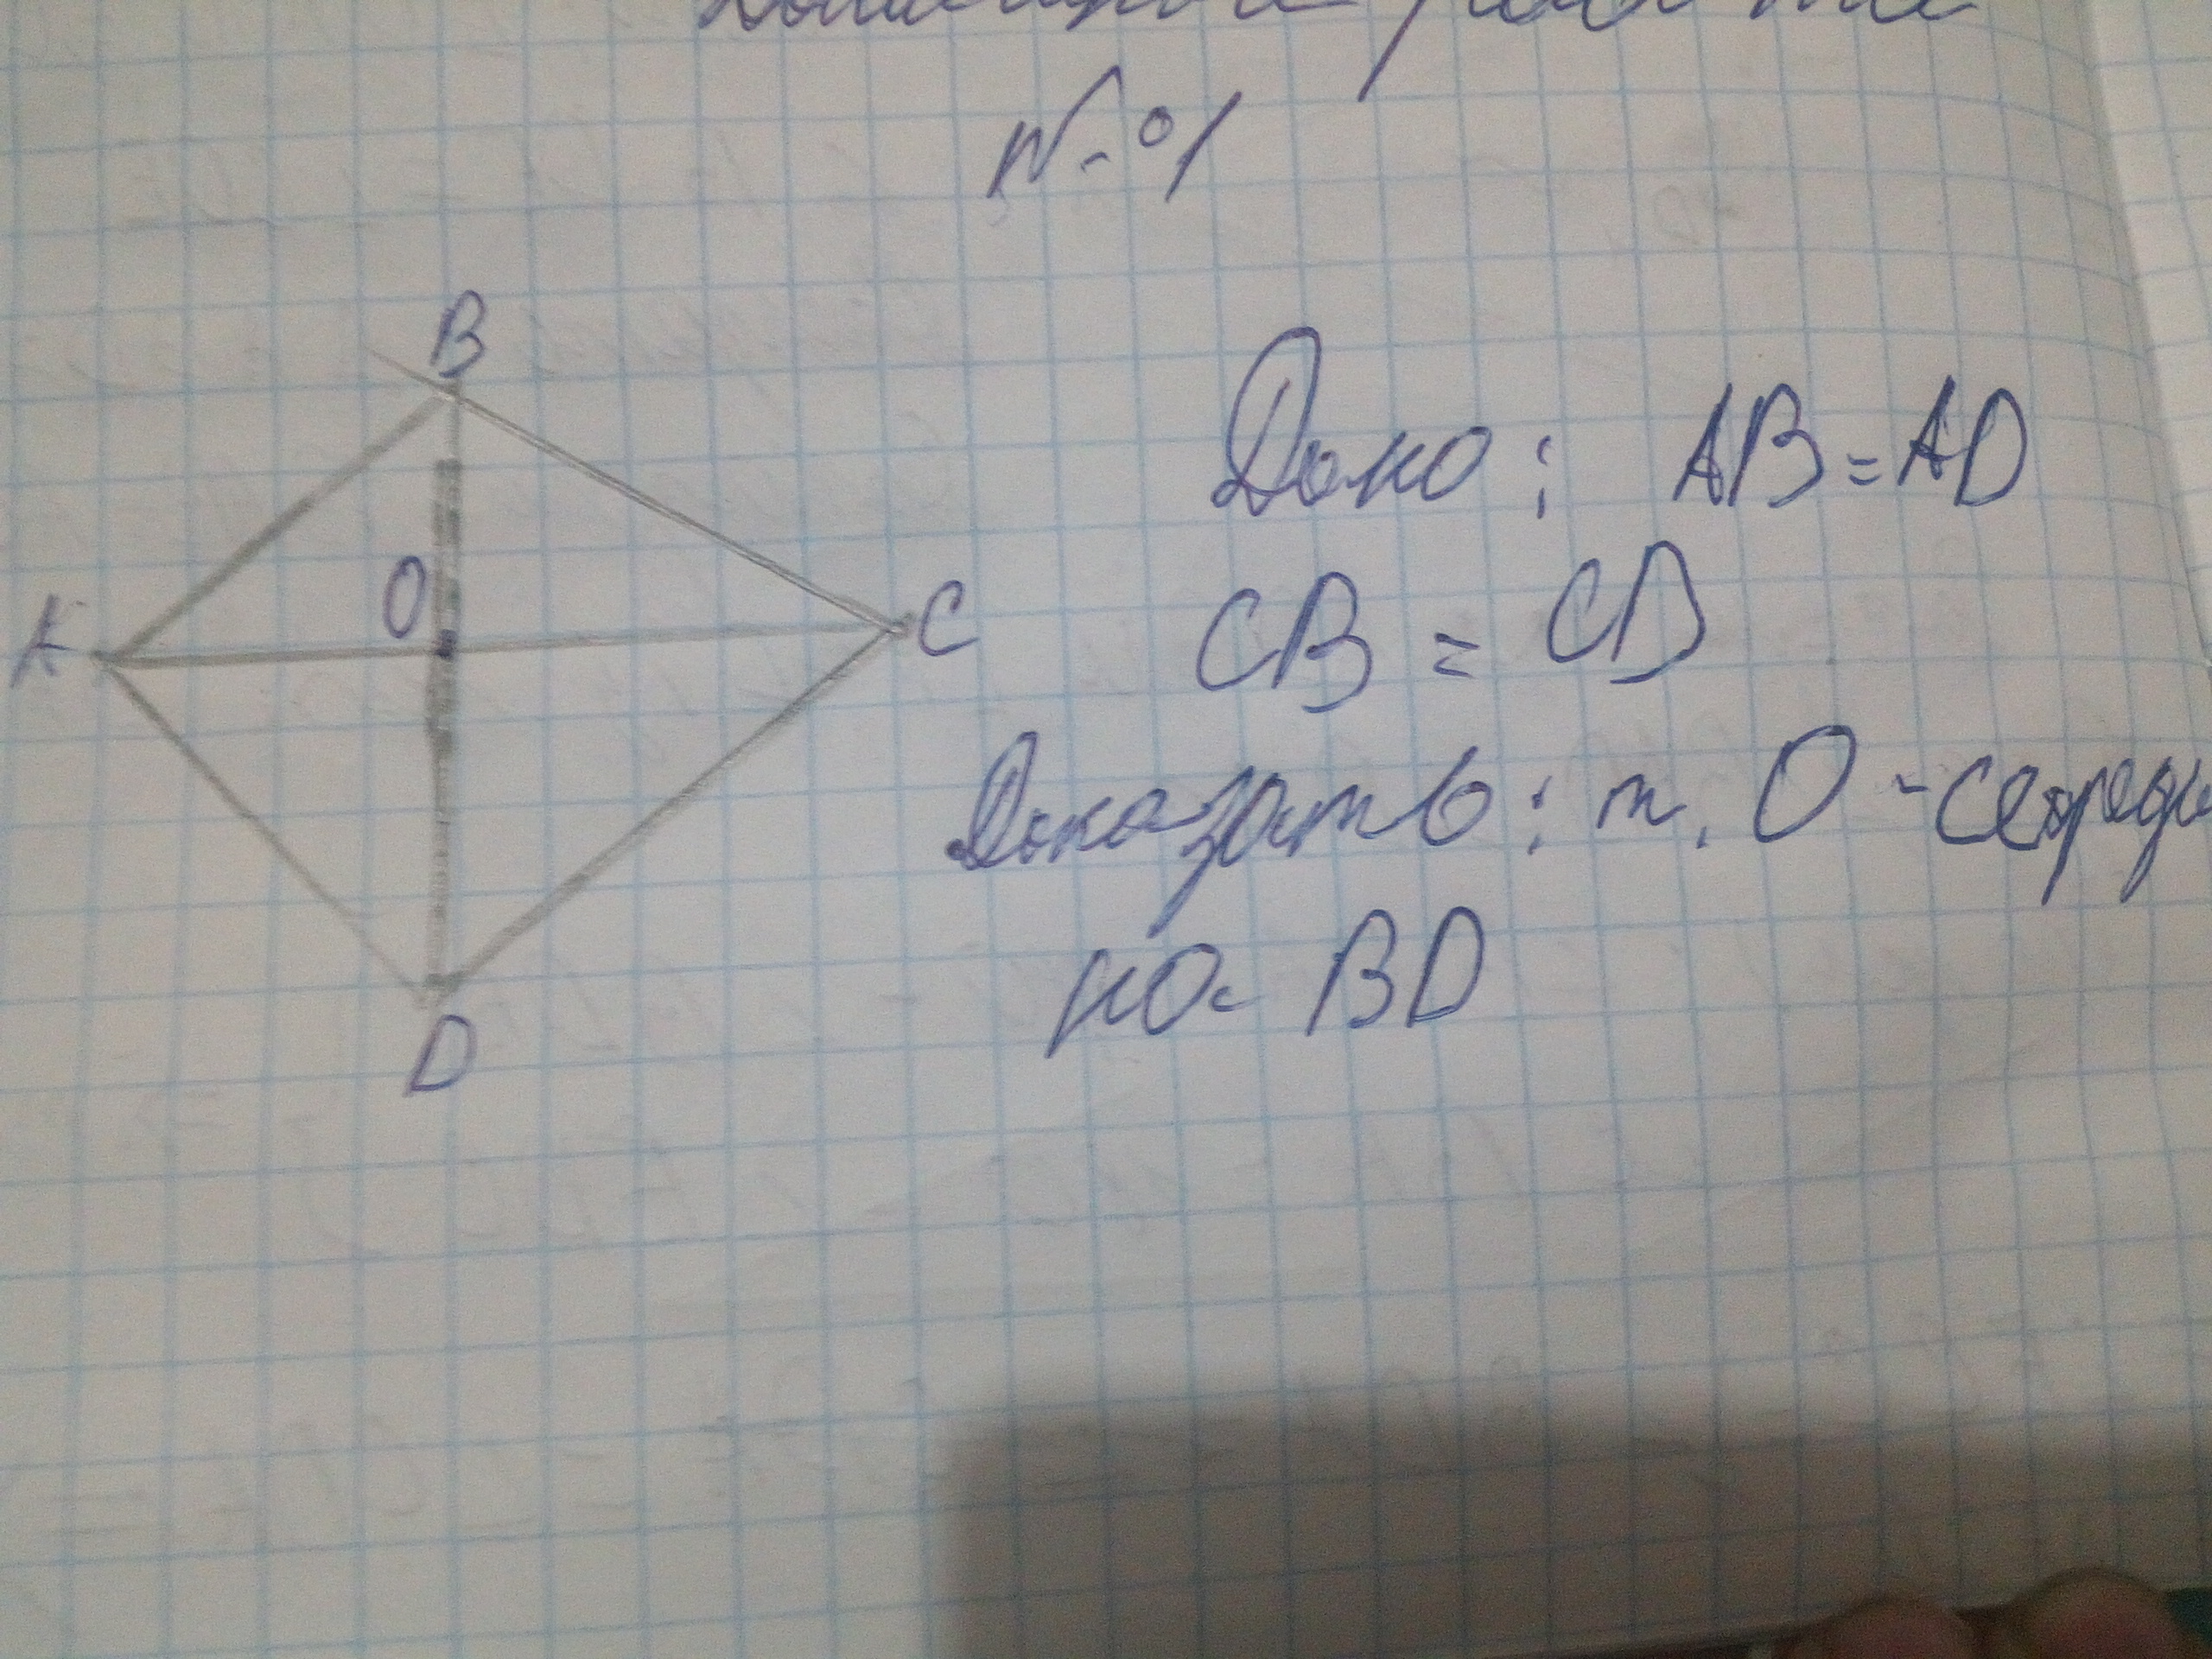 Домашняя работа
№1
B
Дано: AB=AD
O
A
C
CB = CD
Доказать: т. O - середи
на BD
D